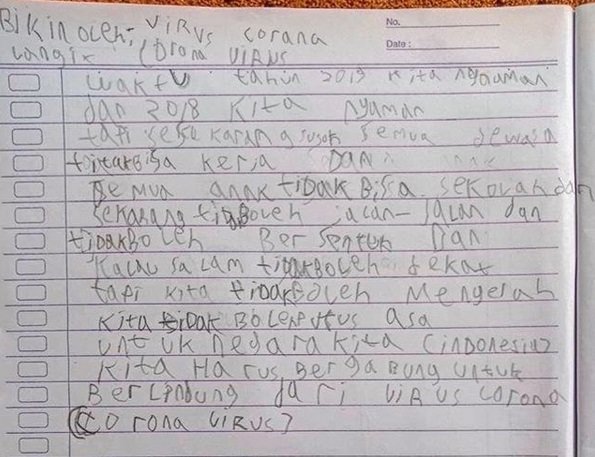 BIKIN OLEH: VIRUS corona
No.
Langix (corona VIRUS
Date:
waktu tahun 2019 kita nyaman
dan 2018 kita nyaman
tapi sekarang susah semua dewasa
tidak bisa kerja DAN
Semua anak tidak Bisa sekolah dan
sekarang tidak boleh jalan-jalan dan
tidak Boleh Bersentuk Dan
Kalau salam tidak Boleh dekat
tapi kita tidak Boleh Mengerah
kita tidak Boleh putus asa
untuk negara kita (indonesia)
kita Harus Bergabung untuk
Berlindung dari VIRUS corona
(Corona VIRUS)